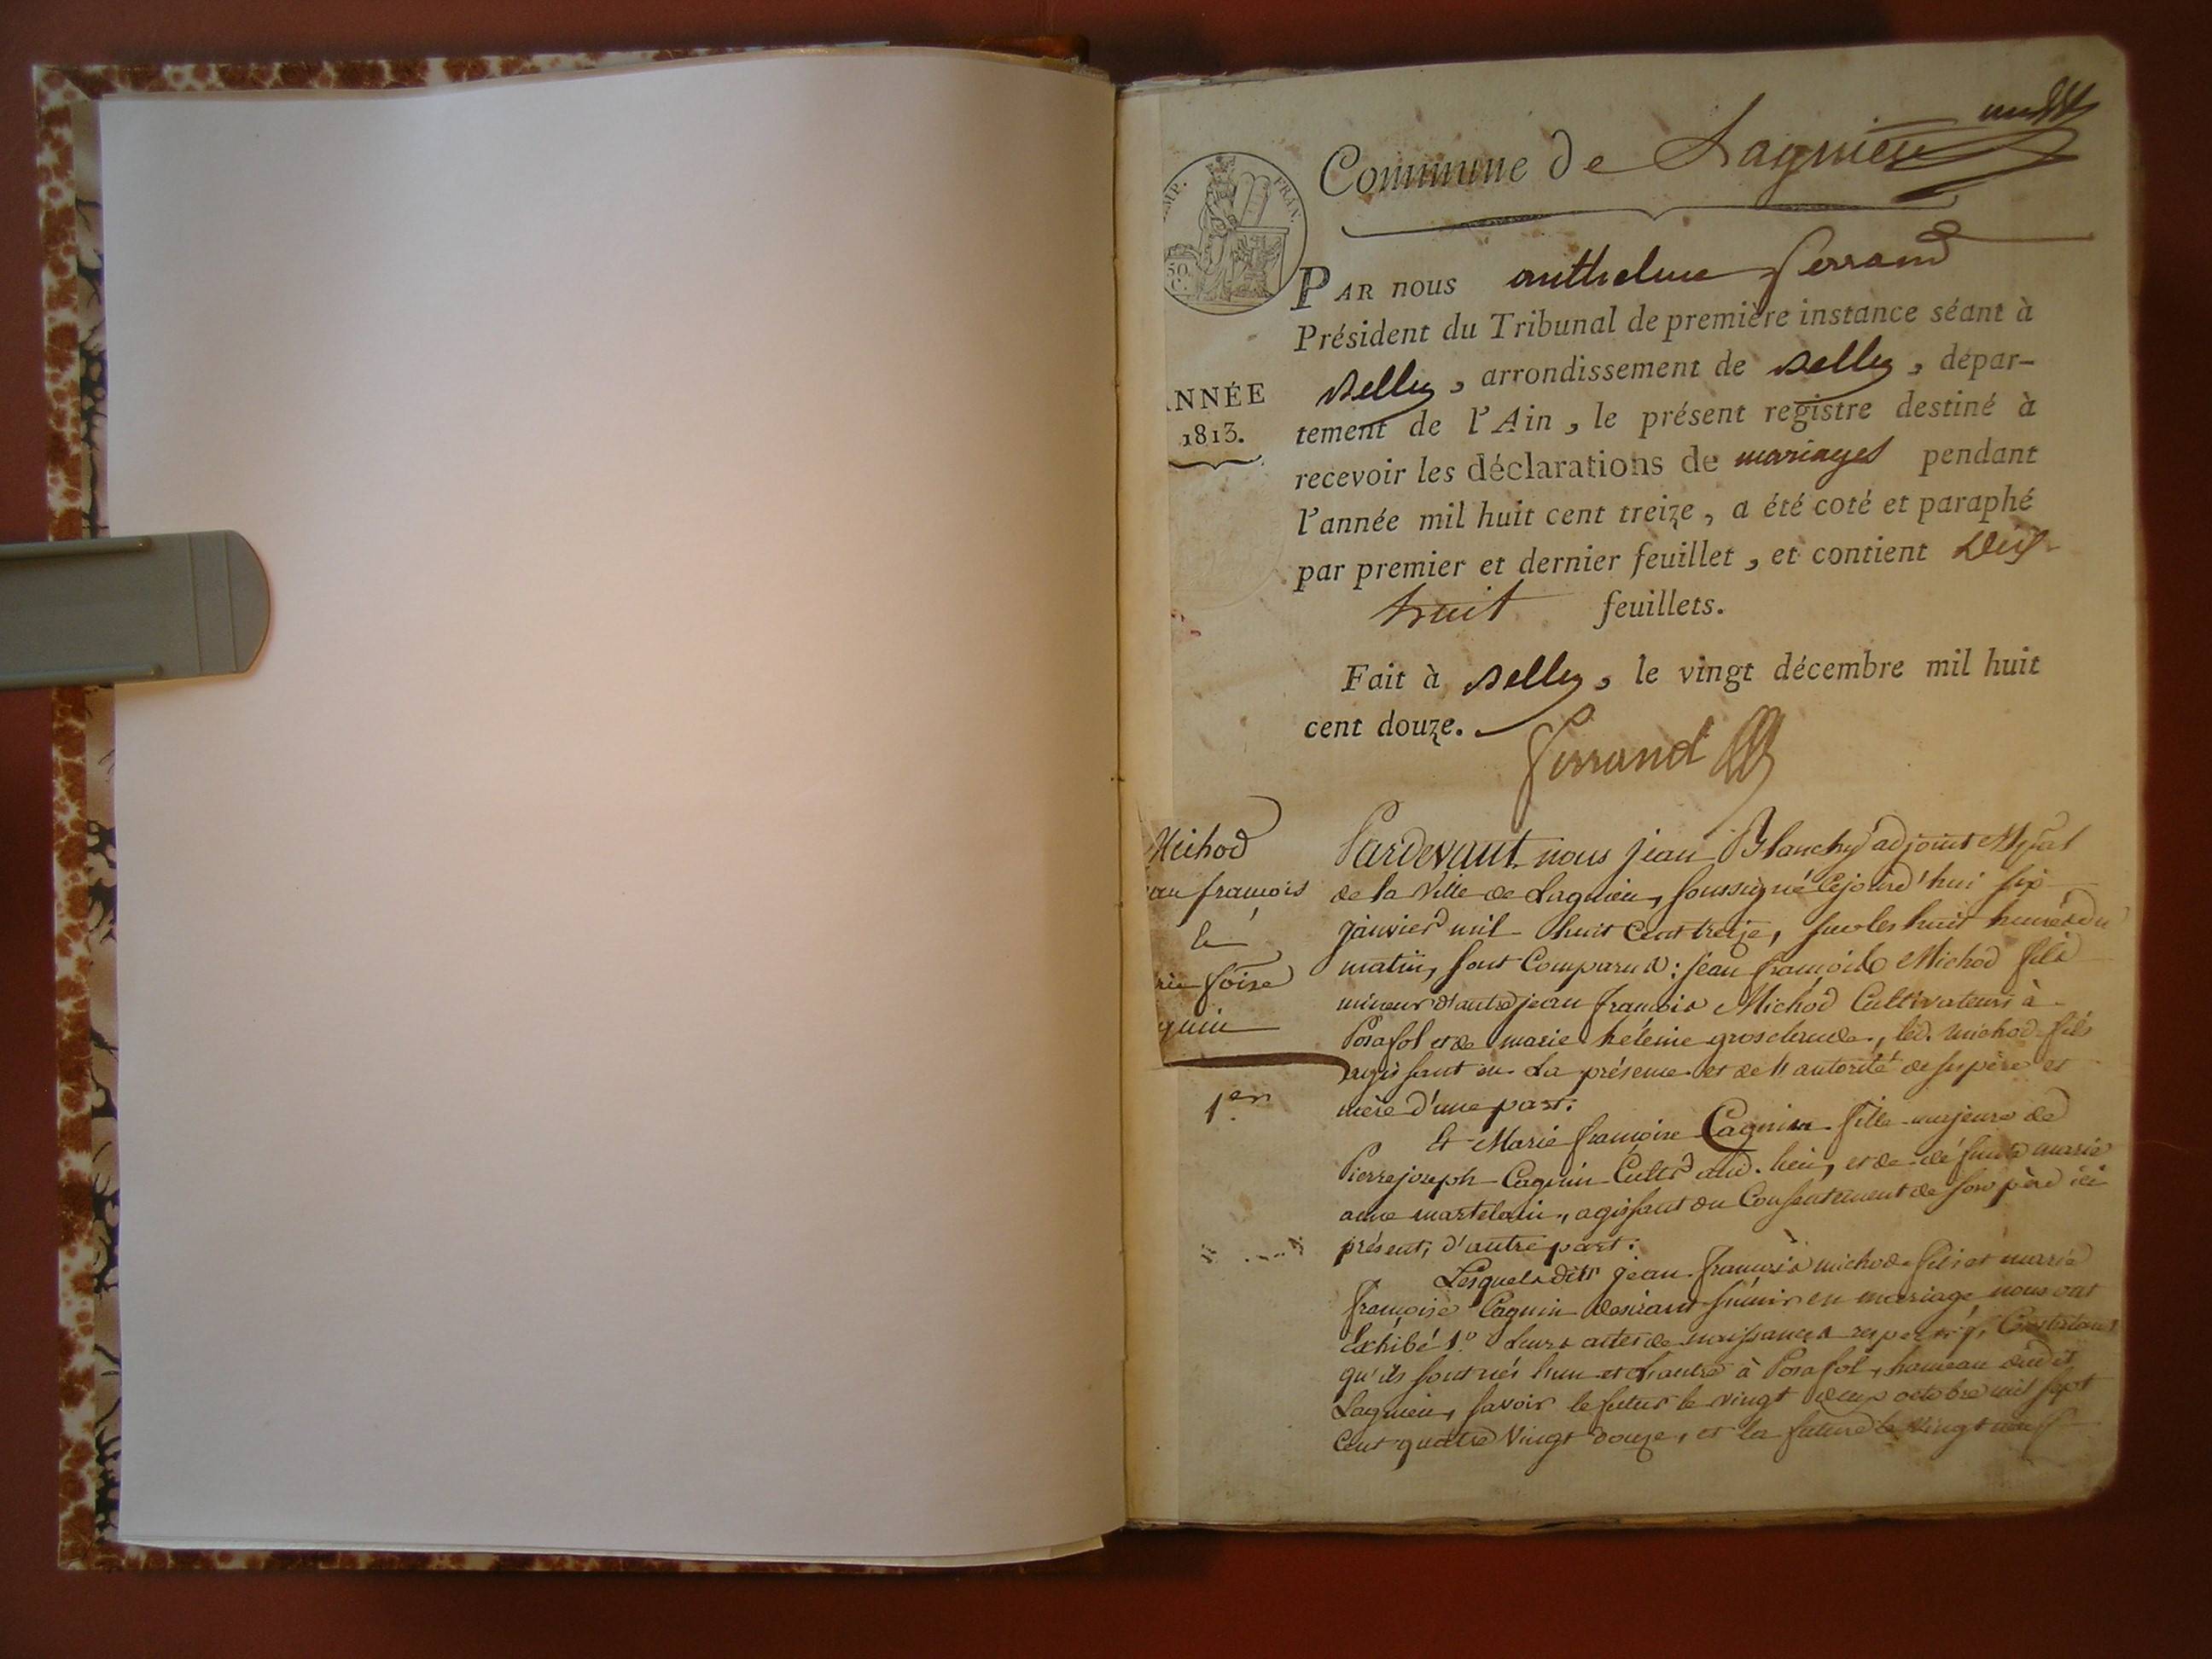 Commune de Lagnieu
IMP. FRAN.
50
C.
PAR nous anthelme ferrand
Président du Tribunal de première instance séant à
Belley, arrondissement de Belley, dépar-
tement de l'Ain, le présent registre destiné à
recevoir les déclarations de mariages pendant
l'année mil huit cent treize, a été coté et paraphé
par premier et dernier feuillet, et contient Dix
huit feuillets.
Fait à Belley, le vingt décembre mil huit
cent douze.
ferrand
NNÉE
1813.
Michod
an françois
&
rie foise
gnin
1er
Pardevant nous jean Blanchy adjoint Mpal
de la Ville de Lagnieu, soussigné cejourd'hui six
janvier mil huit cent treize, sur les huit heures du
matin, sont Comparus: jean françois Michod fils
mineur d'autre jean françois Michod Cultivateurs à
Posafol et de marie héleine grosclaude, led. michod fils
agissant en la présence et de l'autorité de ses père et
mère d'une part.
Et Marie françoise Cagnin fille majeure de
Pierre joseph Cagnin Cultr aud. lieu, et de défunte marie
anne martelain, agissant du Consentement de son père ici
présent, d'autre part.
Lesquels dits jean françois michod fils et marie
françoise Cagnin desirant s'unir en mariage nous ont
Exhibé 1o leurs actes de naissances respectifs, Constatant
qu'ils sont nés l'un et l'autre à Posafol, hameau dudit
Lagnieu, savoir le futur le vingt deux octobre mil sept
cent quatre vingt douze, et la future le vingt neuf